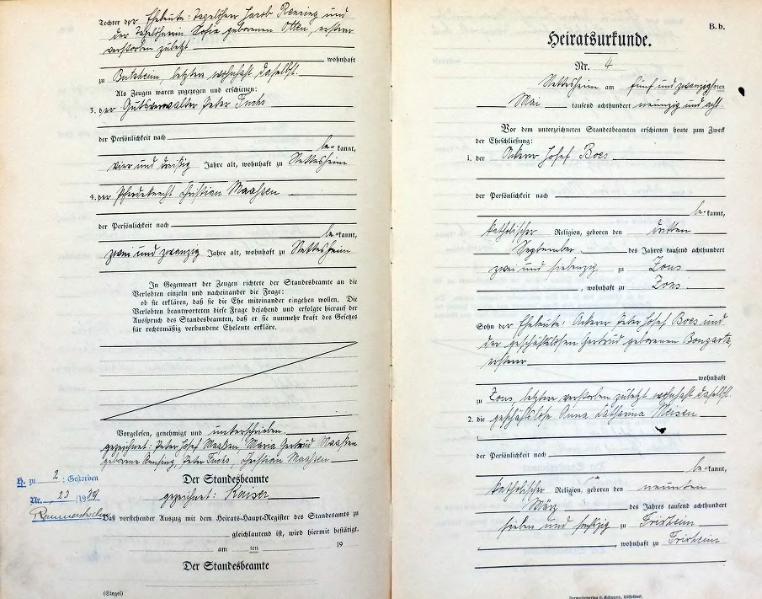 Tochter der Eheleute: Tagelöhner Jacob Rensing und
der Tagelöhnerin Sofia geborenen Otten, ersterer
verstorben zuletzt
wohnhaft
zu Butzheim, letztere wohnhaft daselbst.
Als Zeugen waren zugezogen und erschienen:
3. der Gutsverwalter Peter Fuchs
der Persönlichkeit nach
be-kannt,
vier und dreißig Jahre alt, wohnhaft zu Nettesheim
4. der Pferdeknecht Christian Maaßen
der Persönlichkeit nach
be-kannt,
zwei und zwanzig Jahre alt, wohnhaft zu Nettesheim
In Gegenwart der Zeugen richtete der Standesbeamte an die
Verlobten einzeln und nacheinander die Frage:
ob sie erklären, daß sie die Ehe miteinander eingehen wollen. Die
Verlobten beantworteten diese Frage bejahend und erfolgte hierauf der
Ausspruch des Standesbeamten, daß er sie nunmehr kraft des Gesetzes
für rechtmäßig verbundene Eheleute erkläre.
Vorgelesen, genehmigt und unterschrieben
gezeichnet: Peter Josef Maaßen, Maria Gertrud Maaßen
geborene Rensing, Peter Fuchs, Christian Maaßen
Der Standesbeamte
gezeichnet: Kaiser
H. zu 2: Geboren
Nr. 23 19
Rommerskirchen
Daß vorstehender Auszug mit dem Heirats-Haupt-Register des Standesamts zu
gleichlautend ist, wird hiermit bestätigt.
am ten 19
Der Standesbeamte
(Siegel)
B. b.
Heiratsurkunde.
Nr. 4
Nettesheim am fünf und zwanzigsten
Mai tausend achthundert neunzig und acht
Vor dem unterzeichneten Standesbeamten erschienen heute zum Zweck
der Eheschließung:
1. der Ackerer Josef Boes
der Persönlichkeit nach
be-kannt,
katholischer Religion, geboren den dritten
September des Jahres tausend achthundert
zwei und siebenzig zu Zons
, wohnhaft zu Zons
Sohn der Eheleute: Ackerer Peter Josef Boes und
der geschäftslosen Gertrud geborenen Bongartz,
ersterer
wohnhaft
zu Zons, letztere verstorben zuletzt wohnhaft daselbst.
2. die geschäftslose Anna Catharina Meisen
der Persönlichkeit nach
be-kannt,
katholischer Religion, geboren den neunten
März des Jahres tausend achthundert
sieben und sechzig zu Frixheim
, wohnhaft zu Frixheim